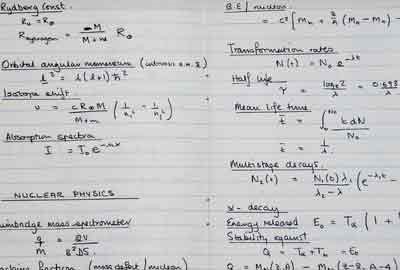 Rydberg Const.
R₀ = R∞
R hydrogen = M / M+m R∞
Orbital angular momentum
l² = l(l+1)ħ²
Isotope shift.
υ = cR∞M / M+m (1/n₁² - 1/n₂²)
Absorption spectra
I = I₀e
NUCLEAR PHYSICS
mass spectrometer
q/m =
(mass defect/nucleon)
B.E / nucleon
= c² [ Mₙ + (Mₙ - Mₙ) -
Transformation rates
N(t) = N₀ e^-λt
Half life
τ = logₑ2 / λ = 0.693
Mean life time
t̄ = ∫ t dN / N₀
t̄ = 1/λ
Multistage decays.
N₂(t) = N₁(0) λ₁ / λ₂ - λ₁ (e^-λ₁t -
α - decay
Energy released E₀ = Tα (1 +
Stability against
Q = Tα + = E₀
Q =